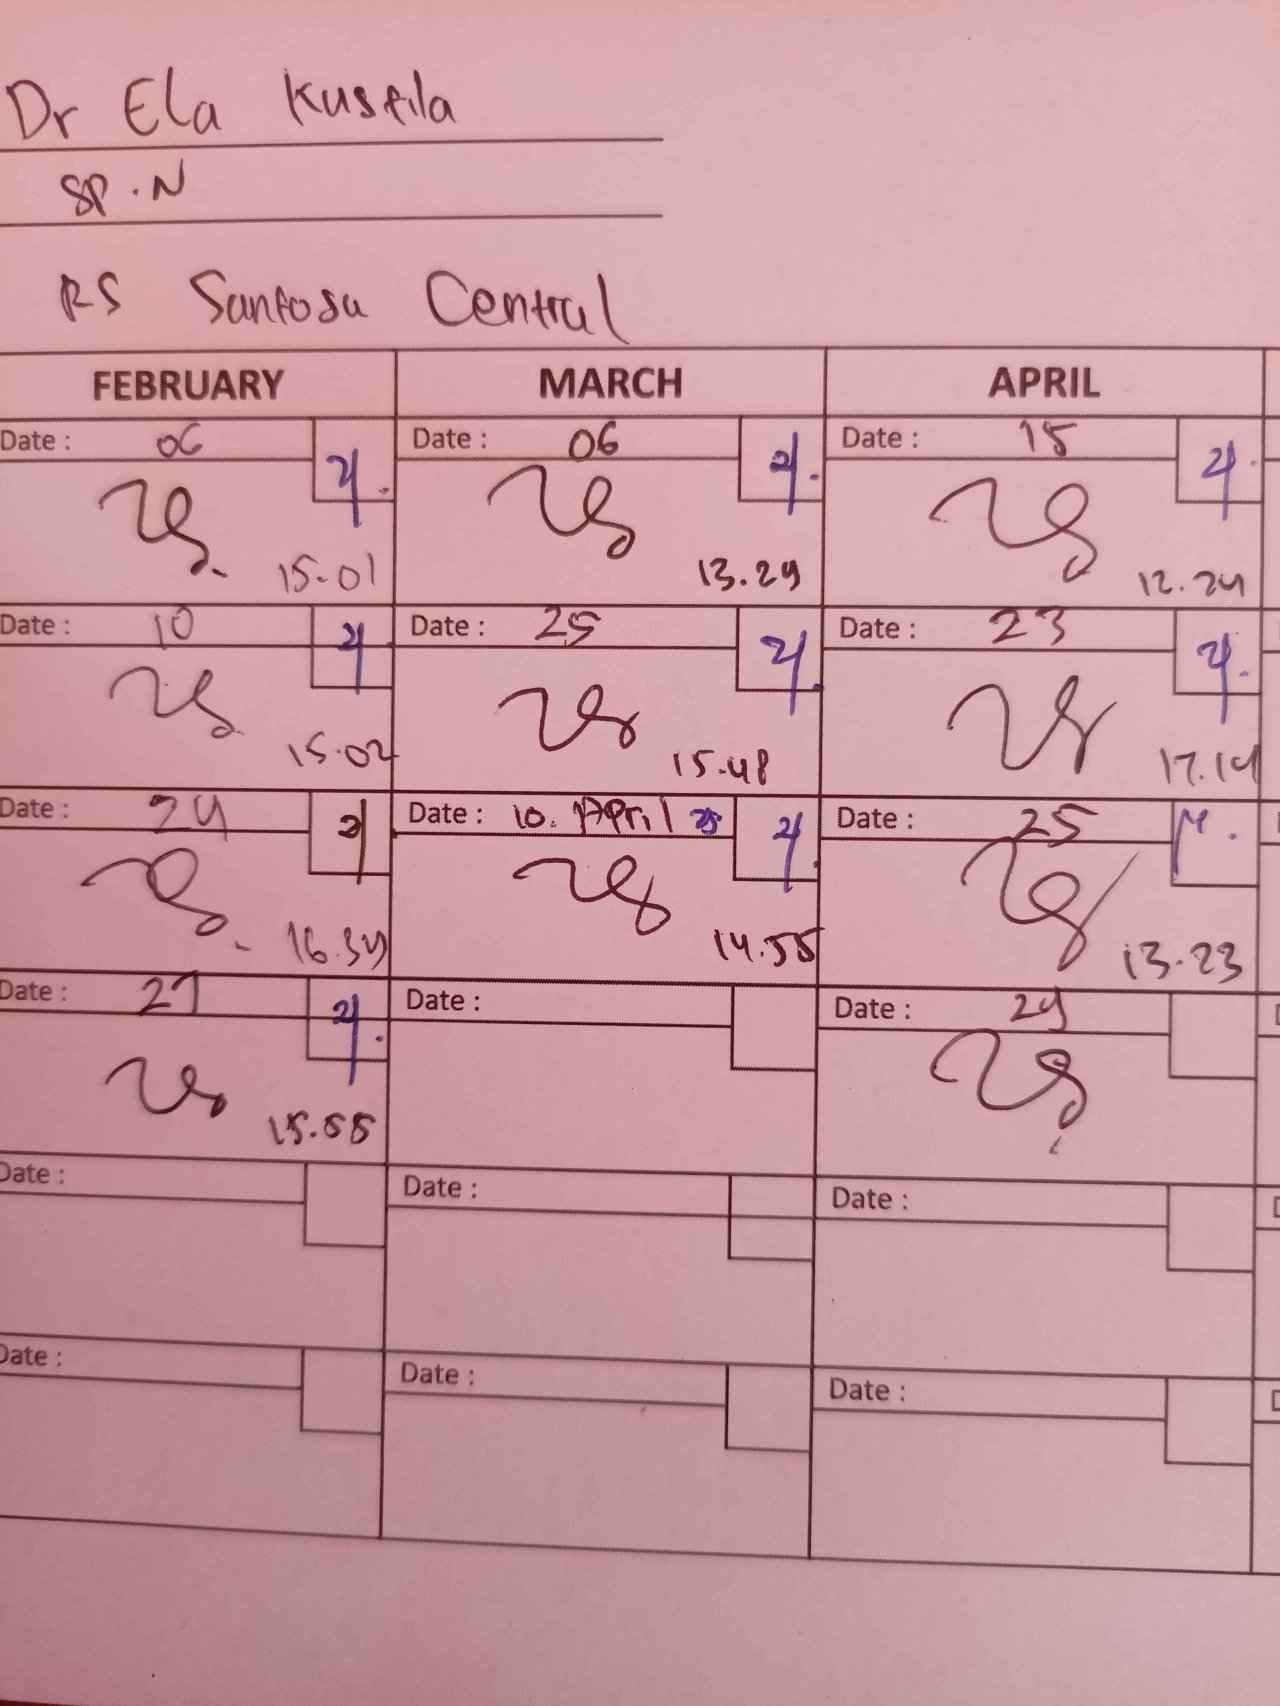 Dr Ela Kustila
SP.N
RS Santosa Central
FEBRUARY MARCH APRIL
Date : 06 Date : 06 Date : 15
15.01 13.29 12.24
Date : 10 Date : 25 Date : 23
15.02 15.48 17.14
Date : 24 Date : 10. April 25 Date : 25
16.34 14.55 13.23
Date : 27 Date : Date : 29
15.55
Date : Date : Date :
Date : Date : Date :